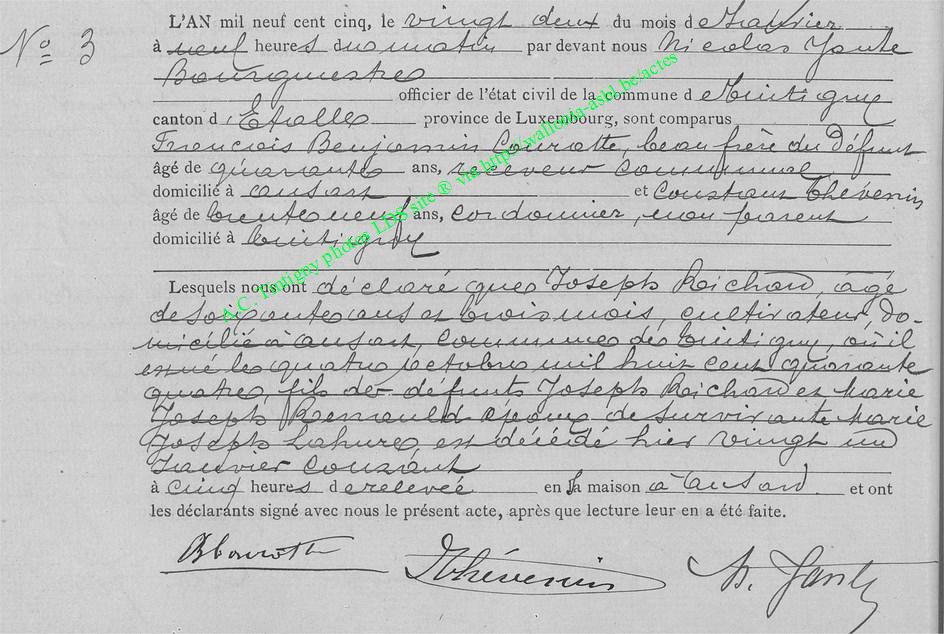 No 3
L'AN mil neuf cent cinq, le vingt deux du mois de Janvier
à neuf heures du matin par devant nous Nicolas Jante
Bourgmestre
officier de l'état civil de la commune de Tintigny
canton d'Etalle province de Luxembourg, sont comparus
François Benjamin Courotte, beau frère du défunt
âgé de quarante ans, receveur communal
domicilié à ansart et Constant Thévenin
âgé de trente neuf ans, cordonnier, non parent
domicilié à tintigny
Lesquels nous ont déclaré que Joseph Richard, âgé
de soixante ans et trois mois, cultivateur, do-
micilié à ansart, commune de tintigny, où il
est né le quatre octobre mil huit cent quarante
quatre, fils de défunts Joseph Richard et Marie
Joseph Renauld époux de survivante Marie
Joseph Lahure, est décédé hier vingt un
Janvier courant
à cinq heures de relevée en sa maison à ansart et ont
les déclarants signé avec nous le présent acte, après que lecture leur en a été faite.
Thévenin
A.C. Tintigny photos LDS site ® via http:\wallonia-asbl.be/actes